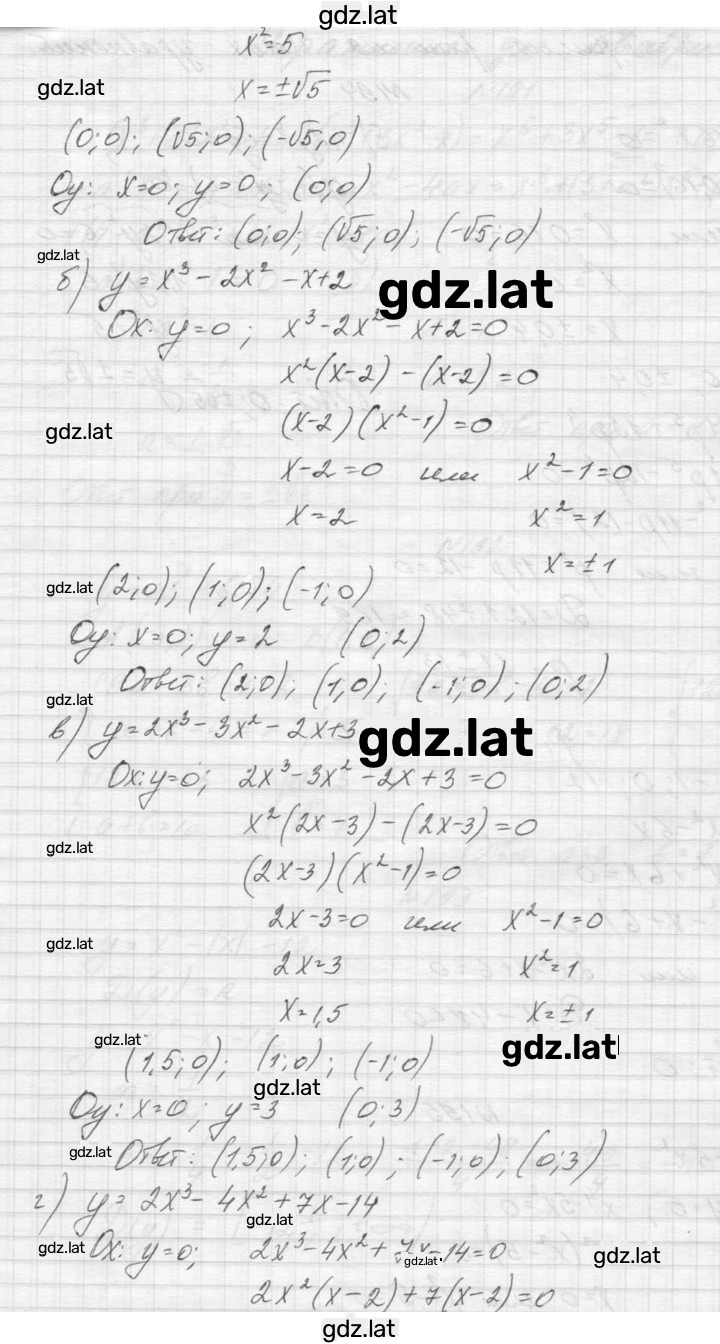 gdz.lat
x²=5
gdz.lat
x=±√5
(0;0); (√5;0); (-√5;0)
Oy: x=0; y=0; (0;0)
Ответ: (0;0); (√5;0); (-√5;0)
gdz.lat
б) y=x³-2x²-x+2
gdz.lat
Ox: y=0; x³-2x²-x+2=0
x²(x-2)-(x-2)=0
(x-2)(x²-1)=0
gdz.lat
x-2=0 или x²-1=0
x=2 x²=1
x=±1
gdz.lat (2;0); (1;0); (-1;0)
Oy: x=0; y=2 (0;2)
Ответ: (2;0); (1;0); (-1;0); (0;2)
gdz.lat
в) y=2x³-3x²-2x+3
gdz.lat
Ox: y=0; 2x³-3x²-2x+3=0
x²(2x-3)-(2x-3)=0
gdz.lat
(2x-3)(x²-1)=0
2x-3=0 или x²-1=0
gdz.lat
2x=3 x²=1
x=1,5 x=±1
gdz.lat
gdz.lat
(1,5;0); (1;0); (-1;0)
gdz.lat
Oy: x=0; y=3 (0;3)
gdz.lat
Ответ: (1,5;0); (1;0); (-1;0); (0;3)
г) y=2x³-4x²+7x-14
gdz.lat
gdz.lat
Ox: y=0; 2x³-4x²+7x-14=0
gdz.lat
gdz.lat
2x²(x-2)+7(x-2)=0
gdz.lat